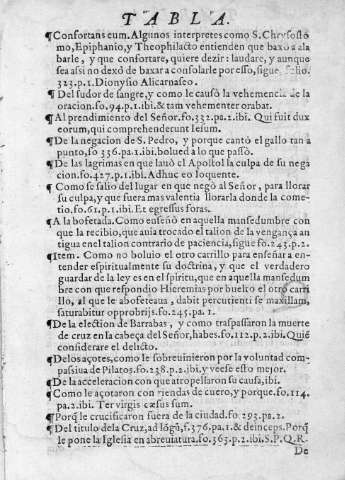 TABLA.
¶Confortans eum. Algunos interpretes como S. Chrysosto
mo, Epiphanio, y Theophilacto entienden que baxò a ala
barle, y que confortare, quiere dezir: laudare, y aunque
sea assi no dexò de baxar a consolarle por esso, sigue, folio.
323. p. 1. Dionysio Alicarnaseo.
¶Del sudor de sangre, y como le causò la vehemencia de la
oracion. fo. 94. p. 1. ibi. & tam vehementer orabat.
¶Al prendimiento del Señor. fo. 332. pa. 2. ibi. Qui fuit dux
eorum, qui comprehenderunt Iesum.
¶De la negacion de S. Pedro, y porque cantò el gallo tan a
punto, fo 336. pa. 1. ibi. bolued a lo que passò.
¶De las lagrimas en que lauò el Apostol la culpa de su nega
cion. fo. 427. p. 1. ibi. Adhuc eo loquente.
¶Como se salio del lugar en que negò al Señor, para llorar
su culpa, y que fuera mas valentia llorarla donde la come-
tio. fo. 61. p. 1. ibi. Et egressus foras.
¶A la bofetada. Como enseñò en aquella mansedumbre con
que la recibio, que auia trocado el talion de la vengança an
tigua en el talion contrario de paciencia, sigue fo. 243. p. 2.
¶Item. Como no boluio el otro carrillo para enseñar a en-
tender espiritualmente su doctrina, y que el verdadero
guardar de la ley es en el espiritu, que en aquella mansedum
bre con que respondio Hieremias por buelto el otro carri
llo, al que le abofeteaua, dabit percutienti se maxillam,
saturabitur opprobrijs. fo. 245. pa. 1.
¶De la election de Barrabas, y como traspassaron la muerte
de cruz en la cabeça del Señor, habes. fo. 112. p. 2. ibi. Quiē
considerare el delicto.
¶De los açotes, como le sobreuinieron por la voluntad com-
passiua de Pilatos. fo. 238. p. 2. ibi. y veese esto mejor.
¶De la acceleracion con que atropellaron su causa, ibi.
¶Como le açotaron con riendas de cuero, y porque. fo. 114.
pa. 2. ibi. Ter virgis cæsus sum.
¶Porq̃ le crucificaron fuera de la ciudad. fo. 293. pa. 2.
¶Del titulo de la Cruz, ad lōgū, f. 376. pa. 1. & deinceps. Porq̃
le pone la Iglesia en abreuiatura. fo. 363. p. 2. ibi. S. P. Q. R.
De